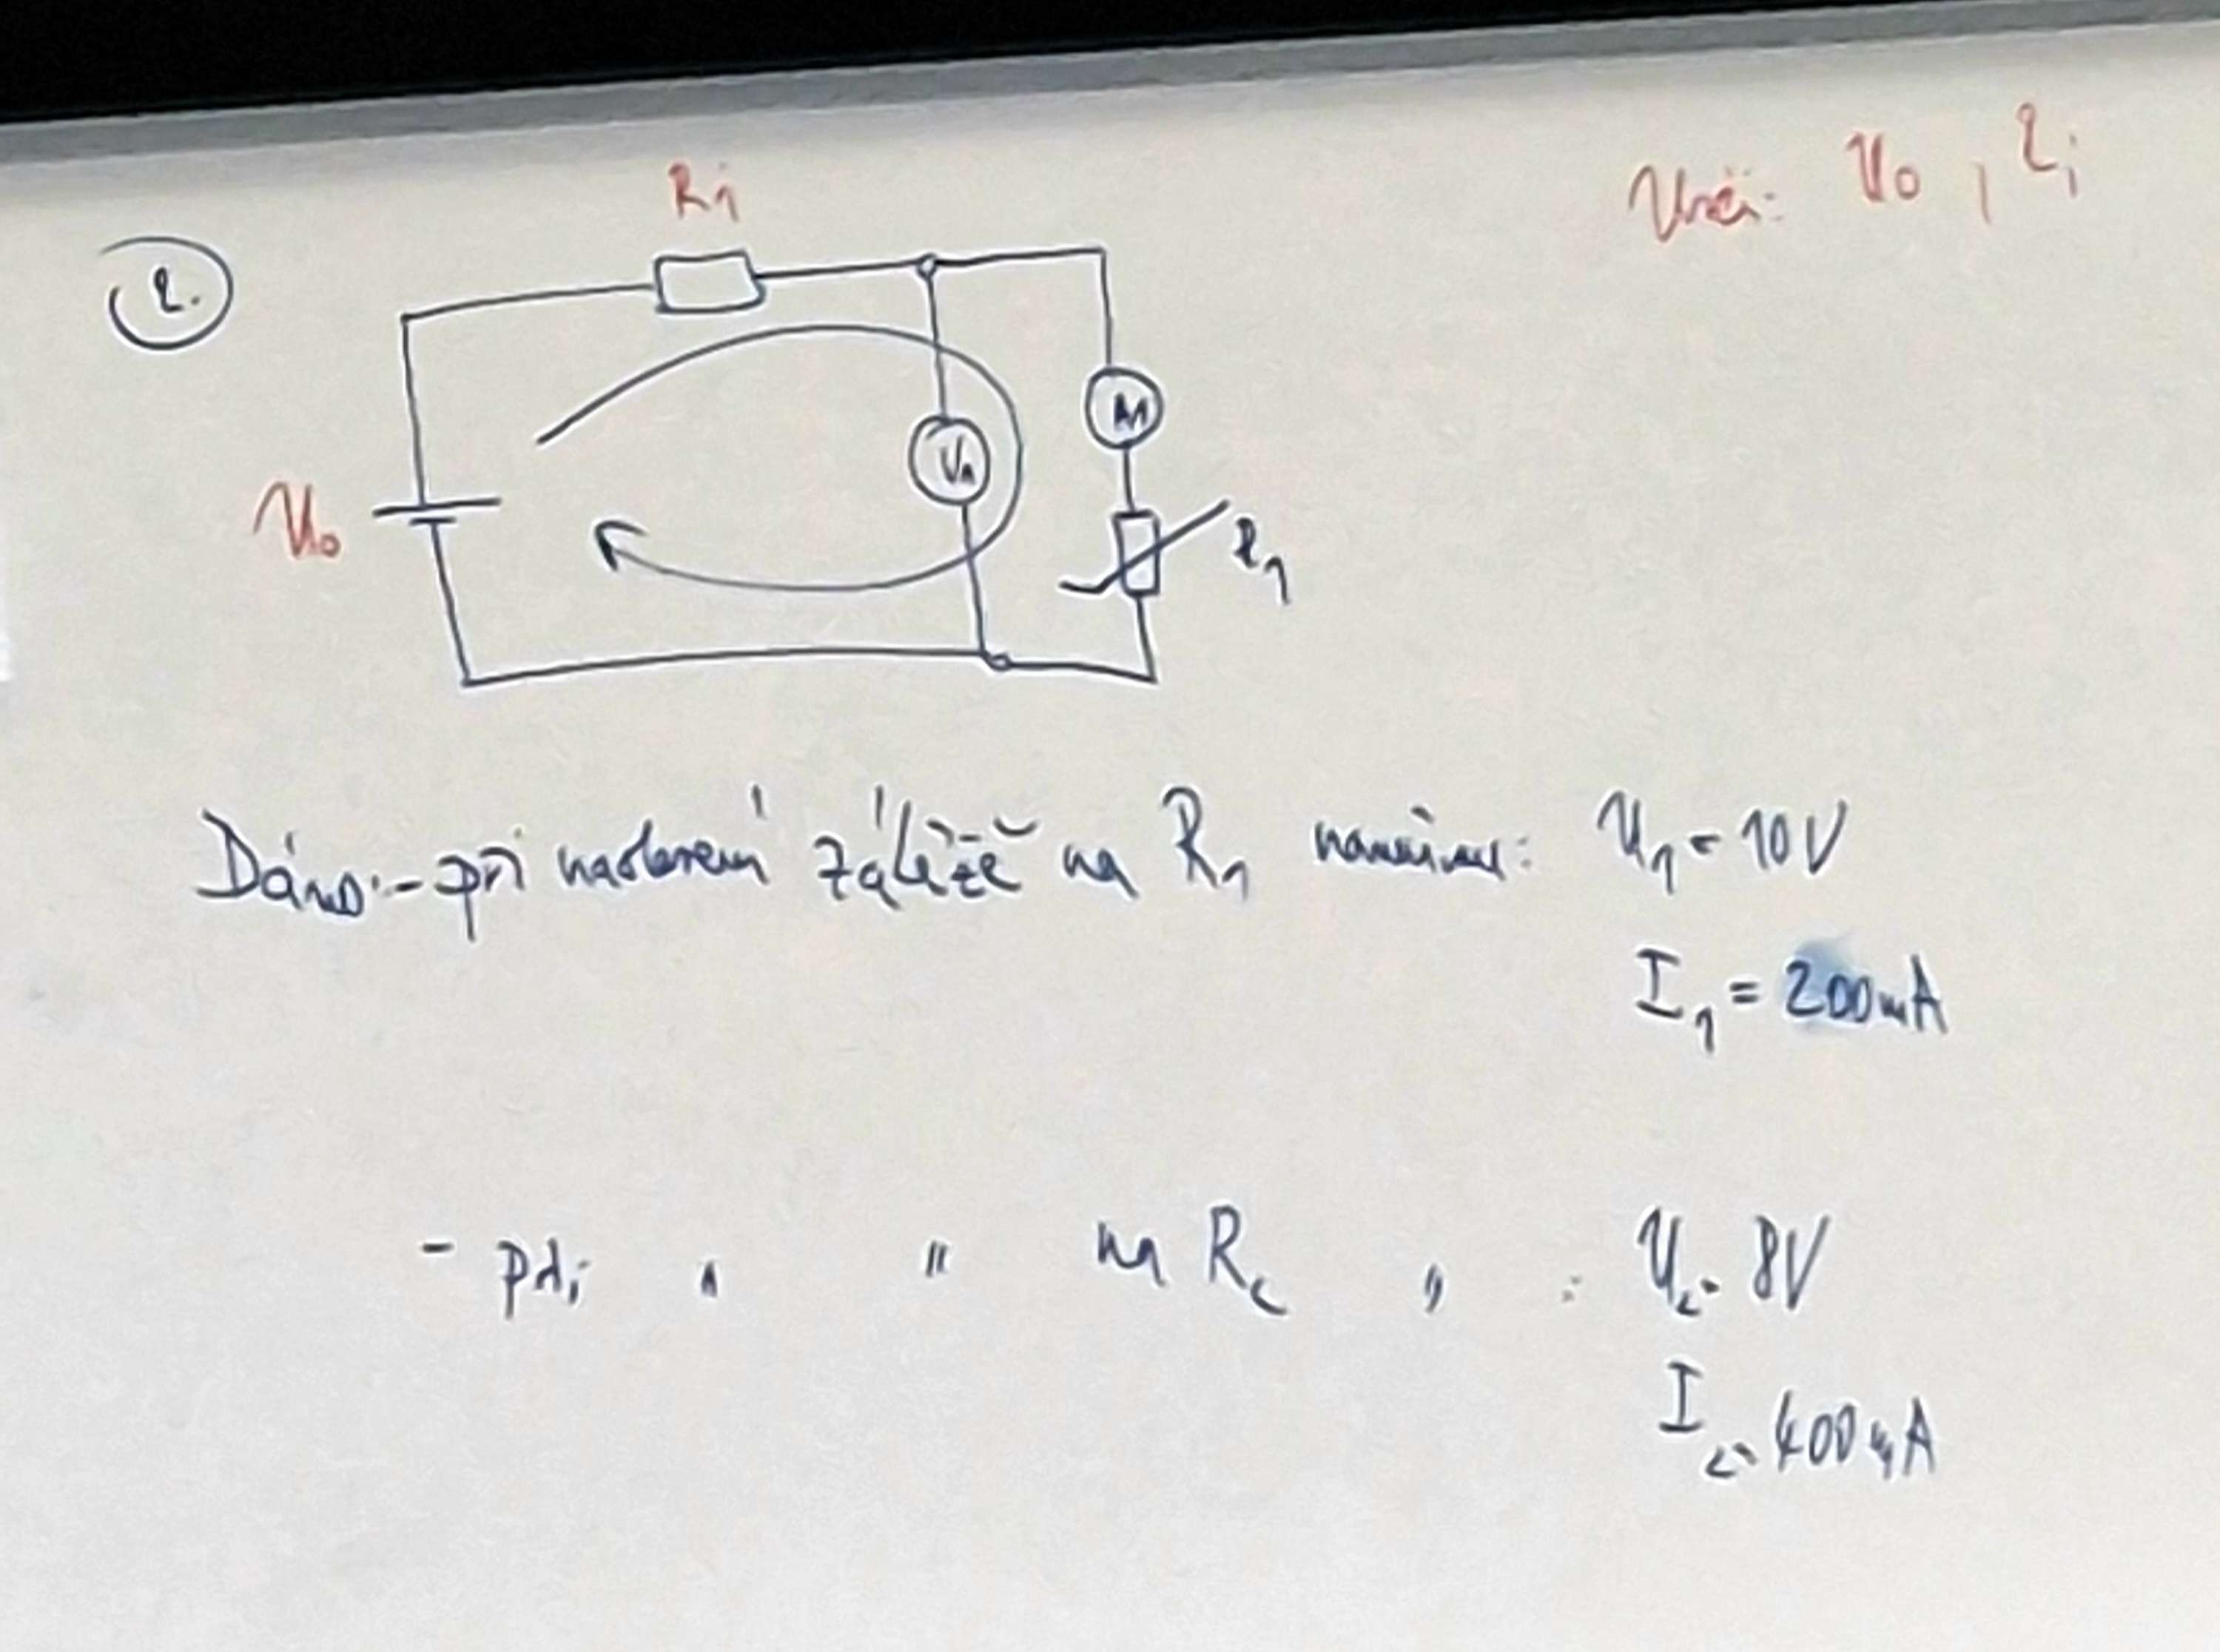 Urči: U₀, Ri
Ri
2.
A1
V1
U₀
R₁
Dáno: - při nastavení zátěže na R₁ naměříme: U₁ = 10V
I₁ = 200mA
- při " " na R₂ " : U₂ = 8V
I₂ = 400mA